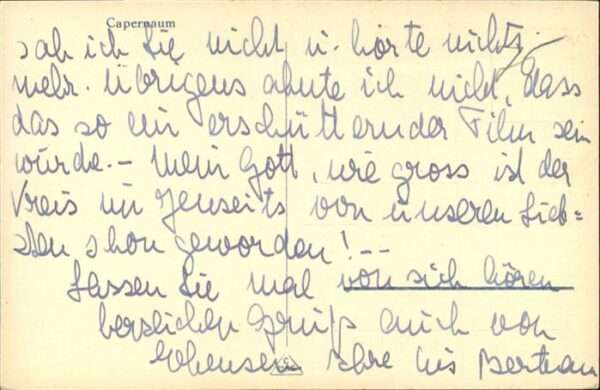 Capernaum
sah ich Sie nicht u. hörte nichts
mehr. Übrigens ahnte ich nicht, dass
das so ein erschütternder Film sein
würde. – Mein Gott, wie gross ist der
Kreis im Jenseits von unseren Lieb=
sten schon geworden! --
Lassen Sie mal von sich hören
herzlichen Gruß auch von
Ihre Bertram